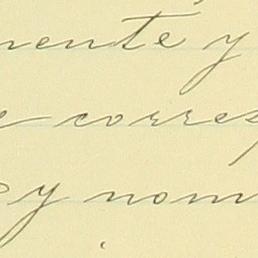 nente y
corres
y nom